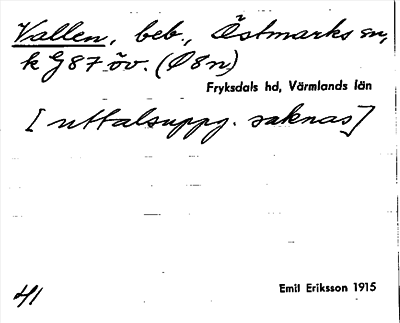 Vallen, beb., Östmarks sn,
k G87 öv. (Ö8n)
Fryksdals hd, Värmlands län
[uttalsuppg. saknas]
41
Emil Eriksson 1915